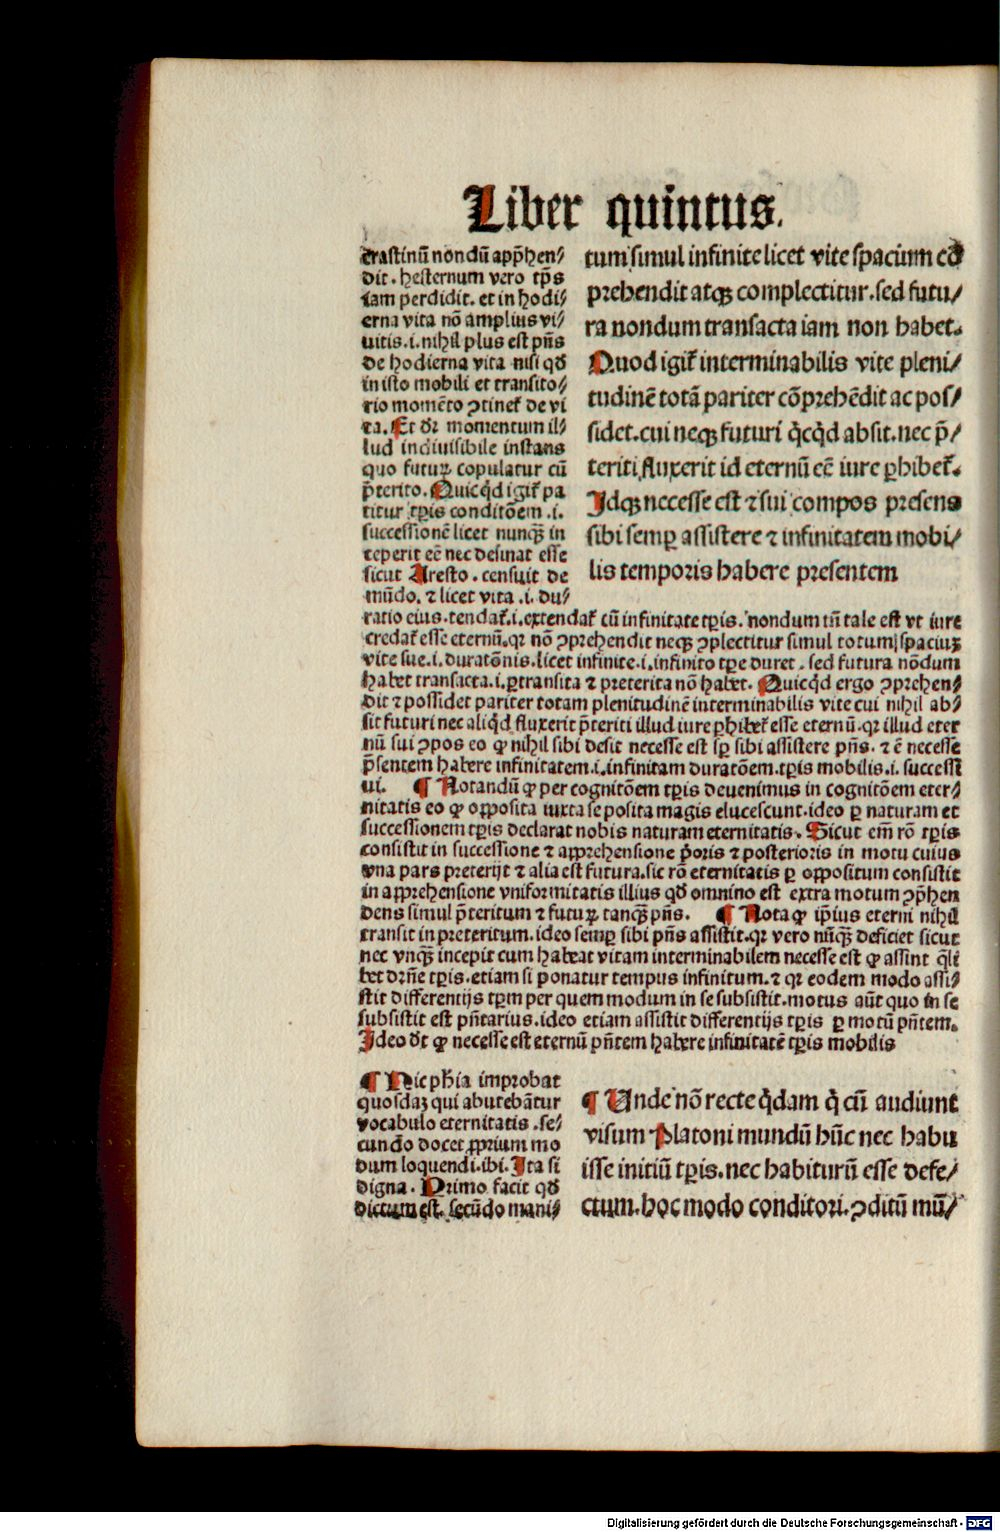 Liber quintus.
crastinū nondū appͤhen/
dit. hesternum vero tp̄s
iam perdidit. et in hodi/
erna vita nō amplius vi/
uitis .i. nihil plus est pn̄s
de hodierna vita nisi qd̄
in isto mobili et transito/
rio momēto ꝯtinet̉ de vi
ta. Et dr̄ momentum il/
lud indiuisibile instans
quo futuꝝ copulatur cū
p̄terito. Quicq̇d igit̉ pa
titur tꝑis conditōem .i.
successionē licet nunqꝫ in
ceperit eē nec desinat esse
sicut Aresto. censuit de
mūdo. ⁊ licet vita .i. du/
tum simul infinite licet vite spacium cō
prehendit atqꝫ complectitur. sed futu/
ra nondum transacta iam non habet.
Quod igit̉ interminabilis vite pleni/
tudinē totā pariter cōprehēdit ac pos/
sidet. cui neqꝫ futuri q̇cq̇d absit. nec p̄/
teriti fluxerit id eternū eē iure ꝑhibet̉.
Idqꝫ necesse est ⁊ sui compos presens
sibi semꝑ assistere ⁊ infinitatem mobi/
lis temporis habere presentem
ratio eius. tendat̉ .i. extendat̉ cū infinitate tꝑis. nondum tn̄ tale est vt iure
credat̉ esse eternū. qꝛ nō ꝯprehendit neqꝫ ꝯplectitur simul totum spaciuꝫ
vite sue .i. duratōnis. licet infinite .i. infinito tꝑe duret. sed futura nōdum
habet transacta .i. ꝑtransita ⁊ preterita nō habet. Quicq̇d ergo ꝯprehen/
dit ⁊ possidet pariter totam plenitudinē interminabilis vite cui nihil ab/
sit futuri nec aliq̇d fluxerit p̄teriti illud iure ꝑhibet̉ esse eternū. qꝛ illud eter
nū sui ꝯpos eo ꝙ nihil sibi desit necesse est sꝑ sibi assistere pn̄s. ⁊ ē necesse
p̄sentem habere infinitatem .i. infinitam duratōem. tꝑis mobilis .i. successi
ui. ¶ Notandū ꝙ per cognitōem tꝑis deuenimus in cognitōem eter/
nitatis eo ꝙ opposita iuxta se posita magis elucescunt. ideo ꝑ naturam et
successionem tꝑis declarat nobis naturam eternitatis. Sicut em̄ rō tꝑis
consistit in successione ⁊ apprehensione p̄oris ⁊ posterioris in motu cuius
vna pars preterijt ⁊ alia est futura. sic rō eternitatis ꝑ oppositum consistit
in apprehensione vniformitatis illius qd̄ omnino est extra motum ꝯp̄hen
dens simul p̄teritum ⁊ futuꝝ. tanqꝫ pn̄s. ¶ Nota ꝙ ip̄ius eterni nihil
transit in preteritum. ideo semꝑ sibi pn̄s assistit. qꝛ vero nūqꝫ deficiet sicut
nec vnqꝫ incepit cum habeat vitam interminabilem necesse est ꝙ assint q̄li
bet drn̄e tꝑis. etiam si ponatur tempus infinitum. ⁊ qꝛ eodem modo assi/
stit differentijs tꝑm per quem modum in se subsistit. motus aūt quo in se
subsistit est pn̄tarius. ideo etiam assistit differentijs tꝑis ꝑ motū pn̄tem.
Ideo dt̄ ꝙ necesse est eternū pn̄tem habere infinitatē tꝑis mobilis
¶ Hic ph̄ia improbat
quosdaꝫ qui abutebātur
vocabulo eternitatis. se/
cundo docet ꝓprium mo
dum loquendi. ibi. Ita si
digna. Primo facit qd̄
dictum est. secūdo mani/
¶ Unde nō recte q̇dam q̇ cū audiunt
visum Platoni mundū hūc nec habu
isse initiū tꝑis. nec habiturū esse defe/
ctum. hoc modo conditori. ꝯditū mū/
Digitalisierung gefördert durch die Deutsche Forschungsgemeinschaft - DFG